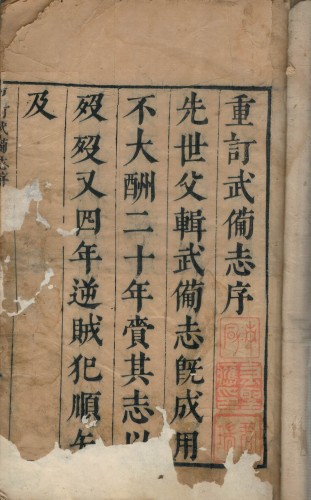 重訂武備志序
先世父輯武備志旣成用
不大酬二十年賫其志以
歿歿又四年逆賊犯順
及